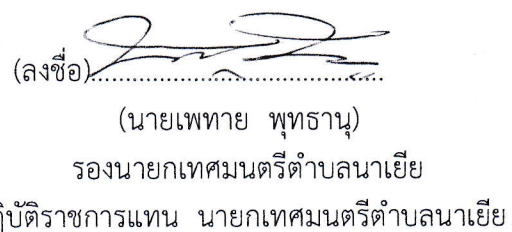 (ลงชื่อ)........................................
(นายเพทาย พุทธานุ)
รองนายกเทศมนตรีตำบลนาเยีย
ฏิบัติราชการแทน นายกเทศมนตรีตำบลนาเยีย